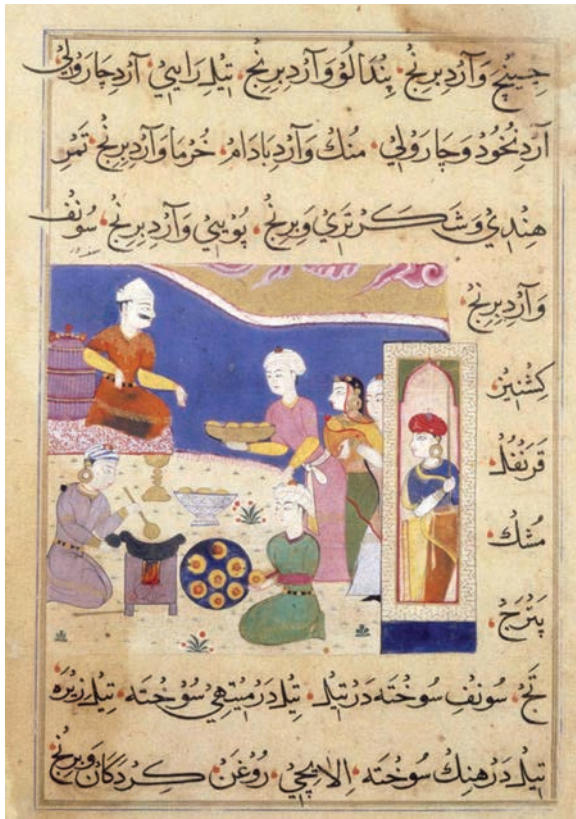 چینچ وآرد برنج، پندالو وآرد برنج، تیل رایی، آرد چارولی
آرد نخود وچارولی، منك وآرد بادام، خرما وآرد برنج، تمر
هندي وشكر تري وبرنج، پویي وآرد برنج، سونف
وآرد برنج،
كشنیز
قرنفل
مشك
پترج،
تج، سونف سوخته در تیل، تیل در میتهي سوخته، تیل زیره
تیل در هنك سوخته، الایچي، روغن كردكان وبرنج